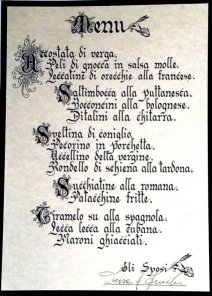 Menu
Accostata di verga.
Peli di gnocca in salsa molle.
Leccaline di orecchie alla francese.
Saltimbocca alla puttanesca.
Bocconcini alla bolognese.
Ditalini alla chitarra.
Sveltina di coniglio.
Pecorino in porchetta.
Uccellino della vergine.
Rondello di schiena alla tardona.
Succhiatine alla romana.
Patacchine fritte.
Ciramelo su alla spagnola.
Lecca lecca alla cubana.
Maroni ghiacciati.
Gli Sposi